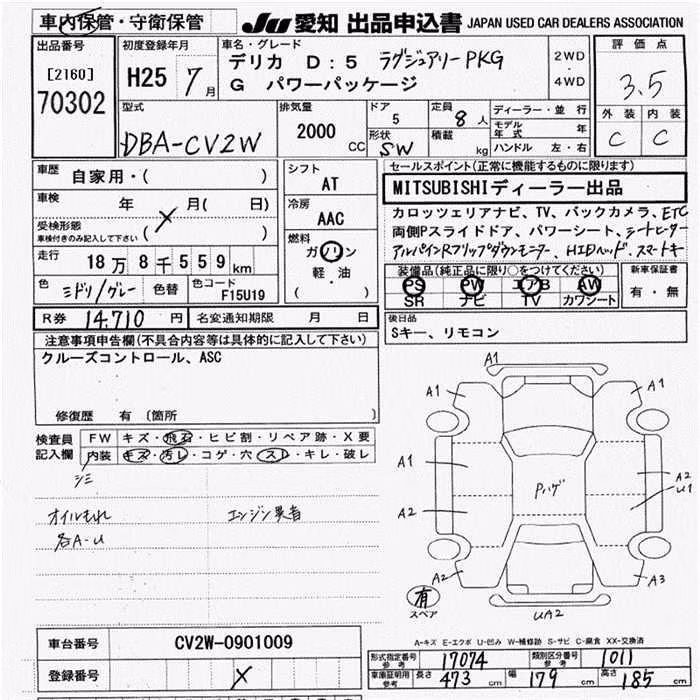 車内保管・守衛保管
JU 愛知 出品申込書 JAPAN USED CAR DEALERS ASSOCIATION
出品番号
[2160]
70302
初度登録年月
H25 7月
車名・グレード
デリカ D:5 ラグジュアリーPKG
G パワーパッケージ
2WD
4WD
評価点
3.5
外装 内装
C C
型式
DBA-CV2W
排気量
2000 CC
ドア
5
形状
SW
定員
8 人
積載
kg
ディーラー・並行
モデル年式 年
ハンドル 左・右
車歴
自家用・( )
車検 年 月( 日)
X
受検形態
車検付きのみ記入して下さい ( )
走行
18万8千559km
色 ミドリ/グレー 色替 色コード F15U19
シフト
AT
冷房
AAC
燃料
ガソリン
軽・油
( )
セールスポイント(正常に機能するものに限ります)
MITSUBISHIディーラー出品
カロッツェリアナビ、TV、バックカメラ、ETC
両側Pスライドドア、パワーシート、シートヒーター
アルパインRフリップダウンモニター、HIDヘッド、スマートキー
装備品(純正品に限り○をつけてください)
PS PW エアB AW
SR ナビ TV カワシート
新車保証書
有・無
R券 14,710 円 名変通知期限 月 日
後日品
Sキー、リモコン
注意事項申告欄(不具合内容等は具体的に記入して下さい)
クルーズコントロール、ASC
修復歴 有 〔箇所 〕
検査員
記入欄
FW キズ・飛石・ヒビ割・リペア跡・X要
内装 キズ・汚レ・コゲ・穴・スレ・キレ・破レ
シミ
オイルもれ エンジン異音
各A-U
A1
A1
A1
A1
A2
A2
U1
Pハゲ
A2
A3
UA2
有
スペア
A-キズ E-エクボ U-凹み W-補修跡 S-サビ C-腐食 XX-交換済
車台番号 CV2W-0901009
登録番号 X
形式指定番号 参考 17074 類別区分番号 参考 1011
車庫証明用 参考 長さ 473 cm 幅 179 cm 高さ 185 cm